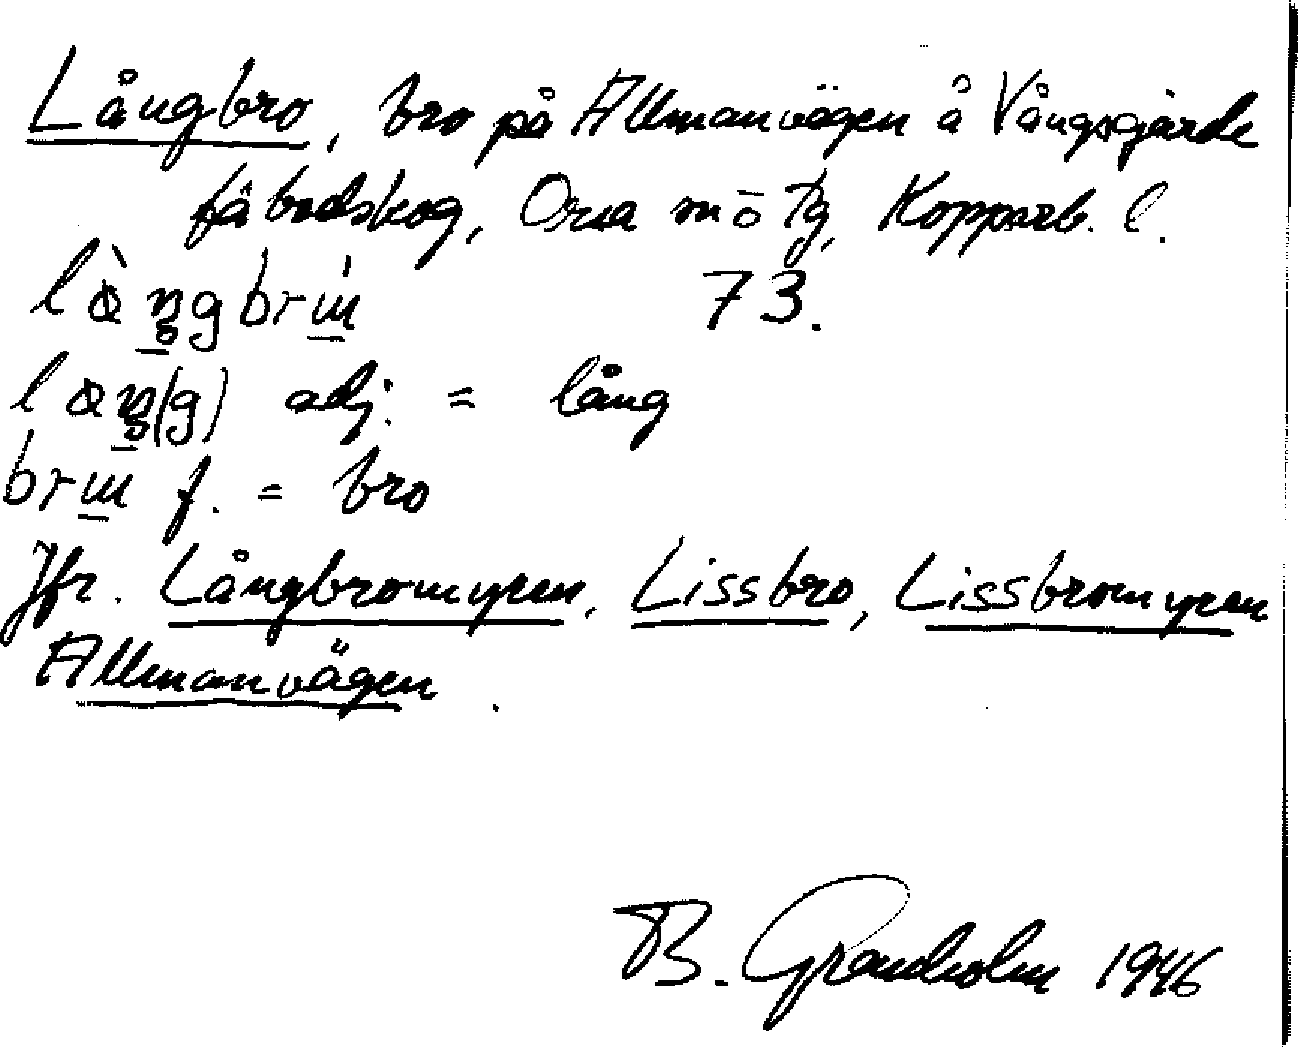 Långbro, bro på Allmanvägen å Vångsgärde
fäbodskog, Orsa sn ö tg, Kopparb. l.
73.
adj. = lång
f. = bro
Jfr. Långbromyren, Lissbro, Lissbromyren
Allmanvägen.
B. Granholm 1946